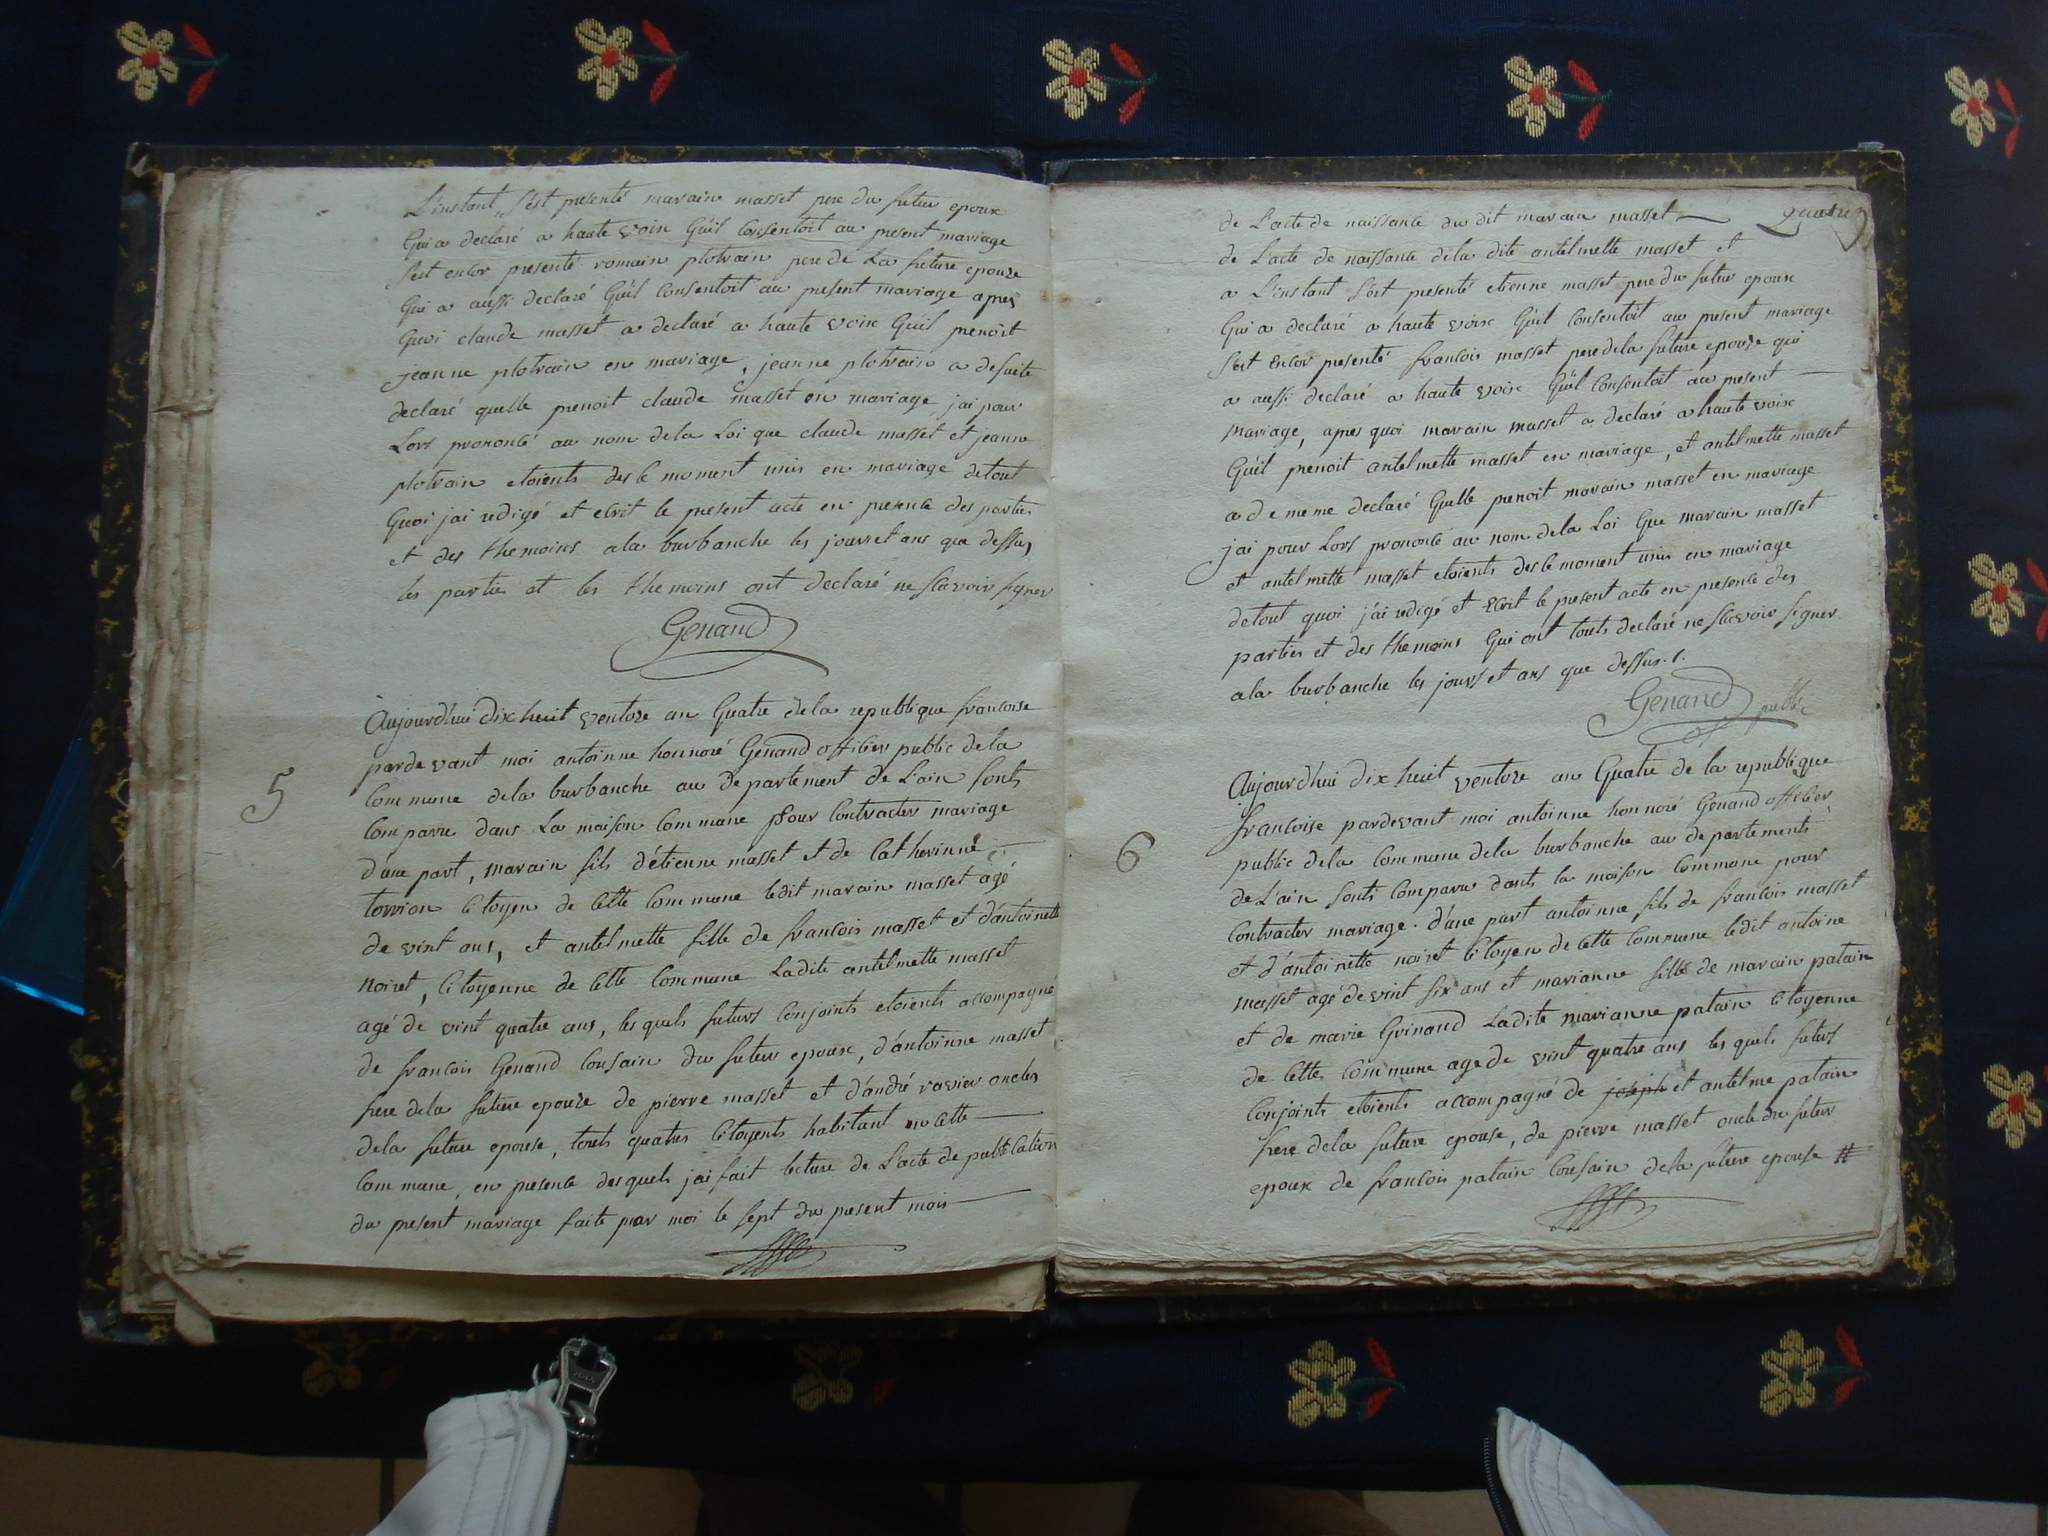 L'instant s'est presenté marain masset pere du futur epoux
Qui a declaré a haute voix Qu'il Consentoit au present mariage
s'est encor presenté romain plotvain pere de La future epouze
Qui a aussi declaré Qu'il Consentoit au present mariage apres
Quoi claude masset a declaré a haute voix Qu'il prenoit
jeanne plotvain en mariage, jeanne plotvain a desuite
declaré quelle prenoit claude masset en mariage jai pour
Lors prononcé au nom dela Loi que claude masset et jeanne
plotvain etoients des le moment unis en mariage detout
Quoi jai redigé et ecrit le present acte en presence des parties
et des themoins ala burbanche les jours et ans que dessus
les parties et les themoins ont declaré ne scavoir signer
Genand
Aujourd'hui dix huit ventoze an Quatre dela republique francoise
pardevant moi antoinne honnoré Genand officier public dela
5
Commune dela burbanche au departement de L'ain sonts
Comparu dans La maison Commune pour Contracter mariage
d'une part, marain fils d'étienne masset et de Catherinne
torrion citoyen de cette Commune ledit marain masset agé
de vint ans, et antelmette fille de francois masset et d'antoinette
noiret, citoyenne de cette Commune Ladite antelmette masset
agé de vint quatre ans, les quels futurs Conjoints etoients accompagné
de francois Genand Cousain du futur epoux, d'antoinne masset
frere dela future epouze de pierre masset et d'andré ravier oncles
dela future epouse, touts quatres citoyents habitant en cette
Commune, en presence desquels jai fait lecture de L'acte de publication
du present mariage faite par moi le sept du present mois
Quatre
de L'acte de naissance du dit marain masset
de L'acte de naissance dela dite antelmette masset et
a L'instant s'est presenté etienne masset pere du futur epoux
Qui a declaré a haute voix Qu'il Consentoit au present mariage
s'est Encor presenté francois masset pere dela future epouze qui
a aussi declaré a haute voix Qu'il Consentoit au present
mariage, apres quoi marain masset a declaré a haute voix
Qu'il prenoit antelmette masset en mariage, et antelmette masset
a de meme declaré Quelle prenoit marain masset en mariage
jai pour Lors prononcé au nom dela Loi Que marain masset
et antelmette masset etoients des le moment unis en mariage
detout quoi j'ai redigé et Ecrit le present acte en presence des
parties et des themoins Qui ont touts declaré ne scavoir signer
ala burbanche les jours et ans que dessus.
Genand
Aujourd'hui dix huit ventoze an Quatre de la republique
francoise pardevant moi antoinne honnoré Genand officier
6
public dela Commune dela burbanche au departements
de L'ain sonts Comparu dants la maison Commune pour
Contracter mariage. d'une part antoinne fils de francois masset
et d'antoinette noiret citoyen de cette Commune ledit antoine
masset agé de vint six ans et marianne fille de marain patain
et de marie Guinand Ladite marianne patain citoyenne
de cette Commune age de vint quatre ans les quels futurs
Conjoints etoients accompagné de joseph et antelme patain
frere dela future epouse, de pierre masset oncle du futur
epoux de francois patain Cousain dela future epouse #